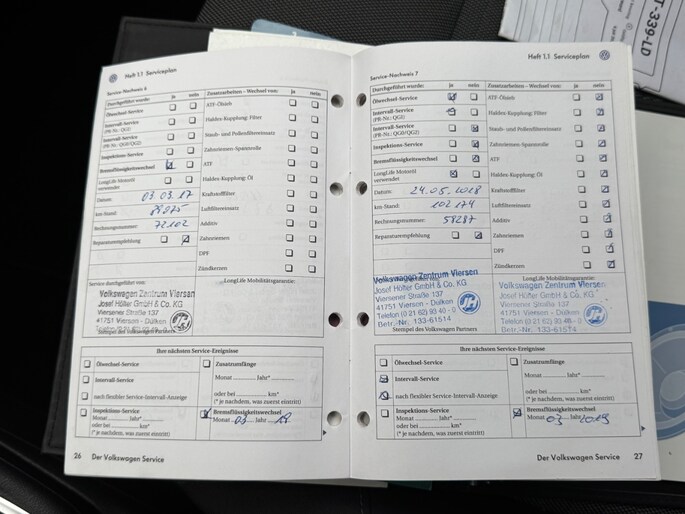 Heft 1.1 Serviceplan
Service-Nachweis 6
Durchgeführt wurde: ja nein
Ölwechsel-Service
Intervall-Service
(PR-Nr.: QG1)
Intervall-Service
(PR-Nr.: QG0/QG2)
Inspektions-Service
Bremsflüssigkeitswechsel
LongLife Motoröl
verwendet
Datum: 03.03.17
km-Stand:
Rechnungsnummer: 72102
Reparaturempfehlung
Zusatzarbeiten – Wechsel von: ja nein
ATF-Ölsieb
Haldex-Kupplung: Filter
Staub- und Pollenfiltereinsatz
Zahnriemen-Spannrolle
ATF
Haldex-Kupplung: Öl
Kraftstofffilter
Luftfiltereinsatz
Additiv
Zahnriemen
DPF
Zündkerzen
Service durchgeführt von:
LongLife Mobilitätsgarantie:
Volkswagen Zentrum Viersen
Josef Hölter GmbH & Co. KG
Viersener Straße 137
41751 Viersen - Dülken
Stempel des Volkswagen Partners
Ihre nächsten Service-Ereignisse
Ölwechsel-Service
Intervall-Service
nach flexibler Service-Intervall-Anzeige
Zusatzumfänge
Monat Jahr*
oder bei km
(* je nachdem, was zuerst eintritt)
Inspektions-Service
Monat Jahr*
oder bei km
(* je nachdem, was zuerst eintritt)
Bremsflüssigkeitswechsel
Monat 03 Jahr 19
26 Der Volkswagen Service
Heft 1.1 Serviceplan
Service-Nachweis 7
Durchgeführt wurde: ja nein
Ölwechsel-Service
Intervall-Service
(PR-Nr.: QG1)
Intervall-Service
(PR-Nr.: QG0/QG2)
Inspektions-Service
Bremsflüssigkeitswechsel
LongLife Motoröl
verwendet
Datum: 24.05.2018
km-Stand: 102 174
Rechnungsnummer: 58287
Reparaturempfehlung
Zusatzarbeiten – Wechsel von: ja nein
ATF-Ölsieb
Haldex-Kupplung: Filter
Staub- und Pollenfiltereinsatz
Zahnriemen-Spannrolle
ATF
Haldex-Kupplung: Öl
Kraftstofffilter
Luftfiltereinsatz
Additiv
Zahnriemen
DPF
Zündkerzen
LongLife Mobilitätsgarantie:
Volkswagen Zentrum Viersen
Josef Hölter GmbH & Co. KG
Viersener Straße 137
41751 Viersen - Dülken
Telefon (0 21 62) 93 40 - 0
Betr.-Nr. 133-61514
JH
Volkswagen Zentrum Viersen
Josef Hölter GmbH & Co. KG
Viersener Straße 137
41751 Viersen - Dülken
Telefon (0 21 62) 93 40 - 0
Betr.-Nr. 133-61514
JH
Stempel des Volkswagen Partners
Ihre nächsten Service-Ereignisse
Ölwechsel-Service
Intervall-Service
nach flexibler Service-Intervall-Anzeige
Zusatzumfänge
Monat Jahr*
oder bei km
(* je nachdem, was zuerst eintritt)
Inspektions-Service
Monat Jahr*
oder bei km
(* je nachdem, was zuerst eintritt)
Bremsflüssigkeitswechsel
Monat 03 Jahr 2019
Der Volkswagen Service 27
T-339-LD